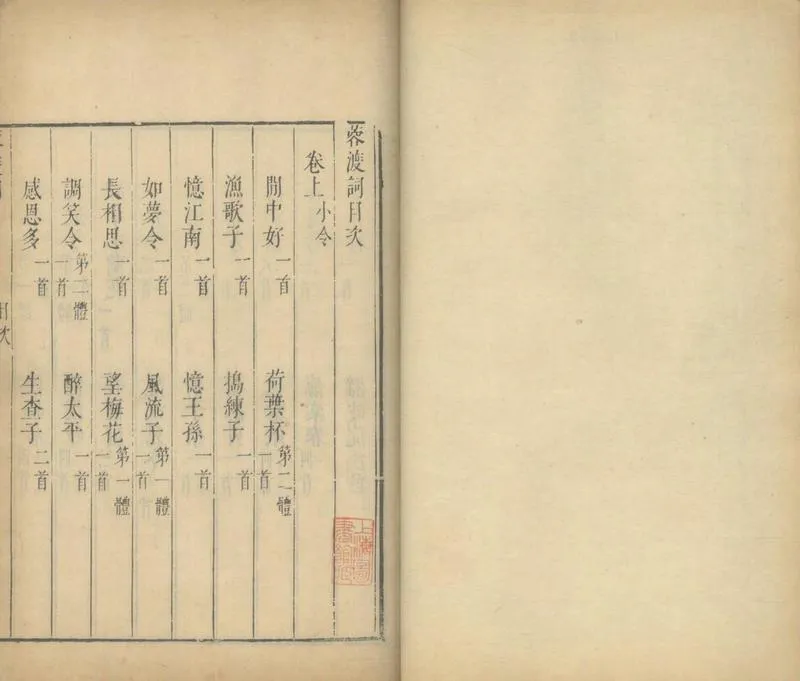 蓉渡詞目次
卷上 小令
閒中好 一首 荷葉杯 第二體 一首
漁歌子 一首 搗練子 一首
憶江南 一首 憶王孫 一首
如夢令 一首 風流子 第一體 一首
長相思 一首 望梅花 第一體 一首
調笑令 第二體 一首 醉太平 一首
感恩多 一首 生查子 二首
目次
上海圖書館藏